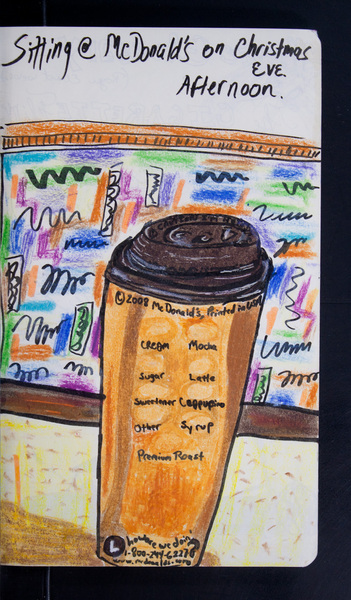 Sitting @ McDonald's on Christmas
Eve.
Afternoon.
©2008 McDonald's, Printed in USA
CREAM Mocha
Sugar Latte
Sweetener Cappupino
Other Syrup
Premium Roast
L how are we doing?
1-800-244-6227
www.mcdonalds.com